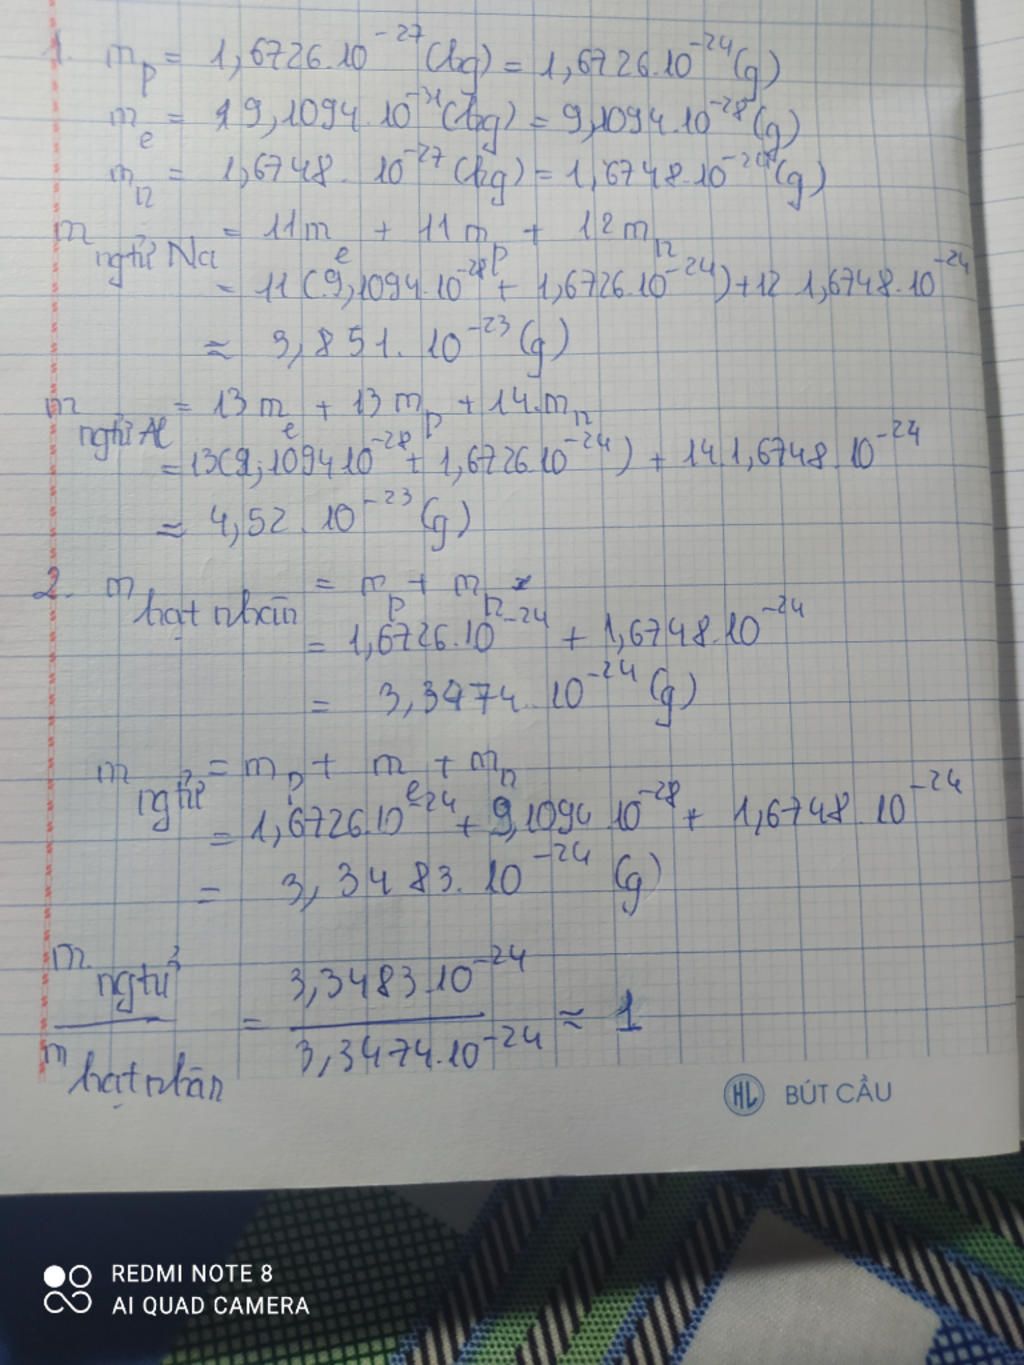 1. m_p = 1,6726.10^-27 (kg) = 1,6726.10^-24 (g)
m_e = 9,1094.10^-31 (kg) = 9,1094.10^-28 (g)
m_n = 1,6748. 10^-27 (kg) = 1,6748.10^-24 (g)
m_ngtử Na = 11m_e + 11m_p + 12m_n
= 11(9,1094.10^-28 + 1,6726.10^-24) + 12 1,6748.10^-24
≈ 3,851.10^-23 (g)
m_ngtử Al = 13m_e + 13m_p + 14.m_n
= 13(9,1094 10^-28 + 1,6726.10^-24) + 14 1,6748.10^-24
≈ 4,52.10^-23 (g)
2. m_hạt nhân = m_p + m_n
= 1,6726.10^-24 + 1,6748.10^-24
= 3,3474.10^-24 (g)
m_ngtử = m_p + m_e + m_n
= 1,6726.10^-24 + 9,1094 10^-28 + 1,6748 10^-24
= 3,3483.10^-24 (g)
m_ngtử / m_hạt nhân = 3,3483.10^-24 / 3,3474.10^-24 ≈ 1
HL BÚT CẦU
REDMI NOTE 8
AI QUAD CAMERA